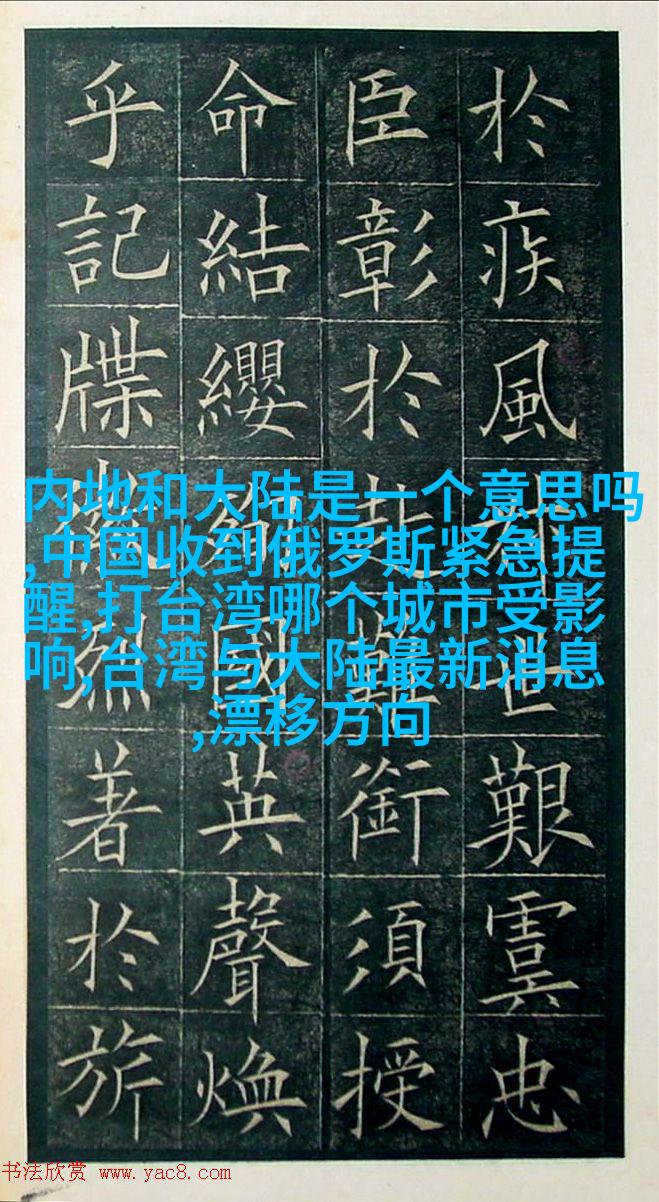 於疾風世艱虞忠
臣彰於赴難銜須授
命結纓殉國英聲煥
乎記牒烈著於旂
内地和大陆是一个意思吗
,中国收到俄罗斯紧急提
醒,打台湾哪个城市受影
响,台湾与大陆最新消息
,漂移方向
书法欣赏 www.yac8.com